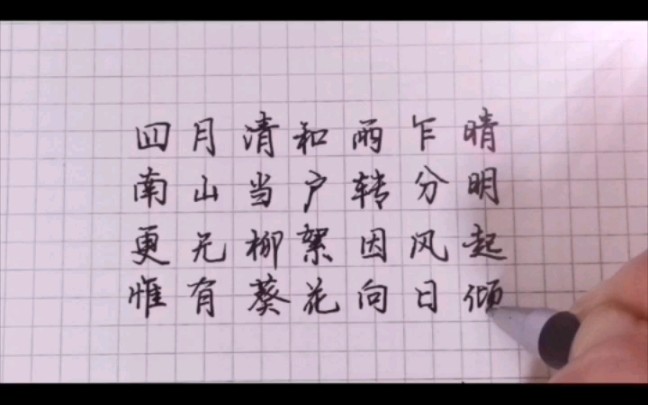 四月清和雨乍晴
南山当户转分明
更无柳絮因风起
惟有葵花向日倾